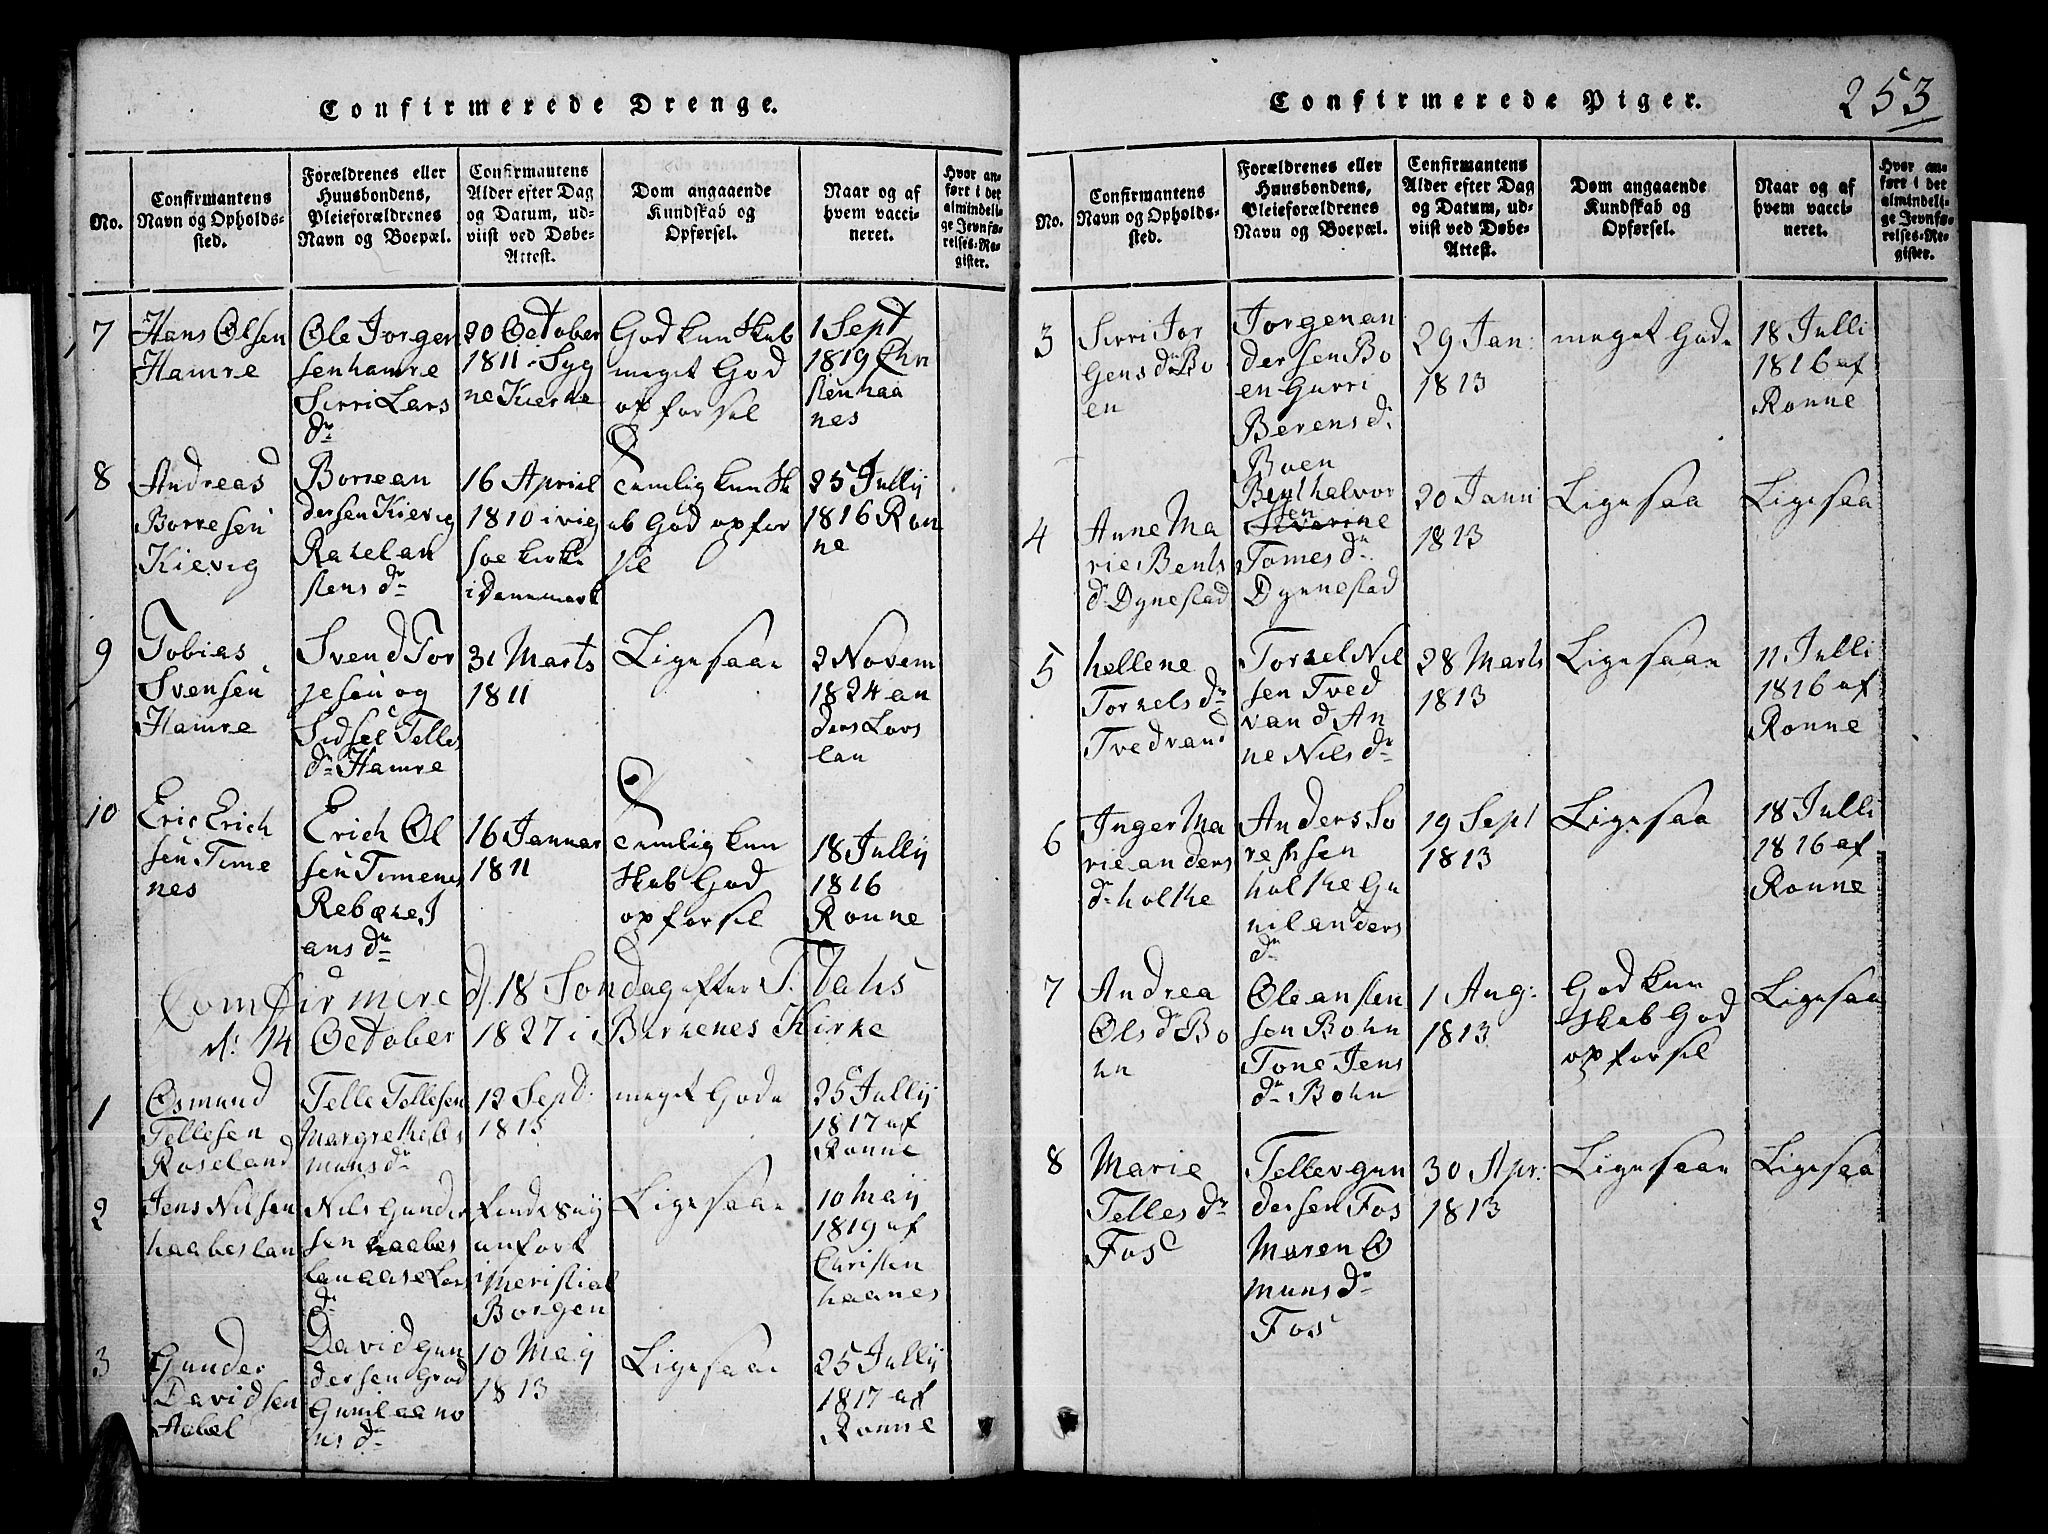 Confirmerede Drenge.
No.
Confirmantens
Navn og Opholds-
sted.
Forældrenes eller
Huusbondens,
Pleieforældrenes
Navn og Boepæl.
Confirmantens
Alder efter Dag
og Datum, ud-
viist ved Døbe-
Attest.
Dom angaaende
Kundskab og
Opførsel.
Naar og af
hvem vacci-
neret.
Hvor an-
ført i det
almindeli-
ge Jevnfø-
relses-Re-
gister.
7
Hans Olsen
Hamre
Ole Jorgen
sen hamre
Sirri Lars
dr
20 October
1811 - Syg
ne Kierke
God kun Skab
meget God
op for sel
1 Sept
1819 Chri
sten haa
nes
8
Andreas
Borresen
Kievig
Borre an
dersen Kievig
Rakel an
stens dr
16 Apriil
1810 i vig
soe kirke
i Danemark
temlig kun Sk
ab God op for
sel
25 Jullij
1816 Ron
ne
9
Tobias
Svensen
Hamre
Svend Tor
jesen og
Sidsel Telles
dr Hamre
31 Marts
1811
Ligesaa
2 Novem
1824 an
ders Lars
lan
10
Eric Erich
sen Time
nes
Erich Ol
sen Timenes
Rebæke J
ans dr
16 Januar
1811
temlig kun
Skab God
op for sel
18 Jullij
1816
Ronne
Comfirmere d. 18 Sondag efter T. Tatis
d: 14 October 1827 i Birkenes Kirke
1
Osmund
Tellesen
Roseland
Telle Tellesen
Margrethe os
muns dr
12 Sept:
1813
meget Gode
25 Jullij
1817 af
Ronne
2
Jens Nilsen
haabeslan
Nils Gunder
sen haabes
lan aase Lars
dr
findes uij
anfort
i Meristial
Borgen
Ligesaa
10 Maij
1819 af
Christen
haanes
3
Gunder
Davidsen
Aabel
David gun
dersen
Gunil aano
ns dr
10 Maij
1813
Ligesaa
25 Jullij
1817 af
Ronne
Confirmerede Piger.
253
No.
Confirmantens
Navn og Opholds-
sted.
Forældrenes eller
Huusbondens,
Pleieforældrenes
Navn og Boepæl.
Confirmantens
Alder efter Dag
og Datum, ud-
viist ved Døbe-
Attest.
Dom angaaende
Kundskab og
Opførsel.
Naar og af
hvem vacci-
neret.
Hvor an-
ført i det
almindeli-
ge Jevnfø-
relses-Re-
gister.
3
Sirri Jor
Gens dr Bo
en
Jorgen an
dersen Bo
en Gurri
Berens dr
Boen
29 Jan:
1813
meget Gode
18 Julli
1816 af
Ronne
4
Anne Ma
rie Bents
dr Dynestad
Bent halvor
sen
Tomes dr
Dynnestad
20 Janu
1813
Ligesaa
Ligesaa
5
hellene
Torkels dr
Tvedvand
Torkel Nil
sen Tved
vand An
ne Nils dr
28 Marts
1813
Ligesaa
11 Julli
1816 af
Ronne
6
Inger Ma
rie anders
dr holthe
Anders So
rensen
holthe Gu
nil anders
dr
19 Sept
1813
Ligesaa
18 Julli
1816 af
Ronne
7
Andrea
Ols dr Bo
hn
Ole ansten
sen Bohn
Tone Jens
dr Bohn
1 Aug:
1813
God kun
Skab God
op for sel
Ligesaa
8
Marie
Telles dr
Fos
Tellev gun
dersen Fos
Maren O
muns dr
Fos
30 Apr:
1813
Ligesaa
Ligesaa